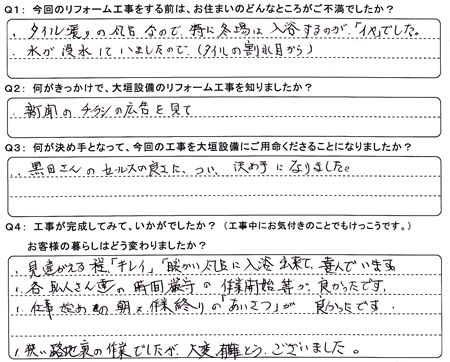 Q1: 今回のリフォーム工事をする前は、お住まいのどんなところがご不満でしたか?
、タイル張りの風呂なので、特に冬場は入浴するのが、「イヤ」でした。
、水が浸水していましたので、(タイルの割れ目から)
Q2: 何がきっかけで、大垣設備のリフォーム工事を知りましたか?
新聞のチラシの広告を見て
Q3: 何が決め手となって、今回の工事を大垣設備にご用命くださることになりましたか?
、黒田さんのセールスの良さに、つい、決め手になりました。
Q4: 工事が完成してみて、いかがでしたか? (工事中にお気付きのことでもけっこうです。)
お客様の暮らしはどう変わりましたか?
、見違がえる程、「キレイ」「暖かい」風呂に入浴出来て、喜んでいます。
、各職人さん達の時間厳守の作業開始等が、良かったです。
、仕事始めの、朝と作業終りの「あいさつ」が 良かったです。
、狭い路地裏の作業でしたが、大変有難とうございました。